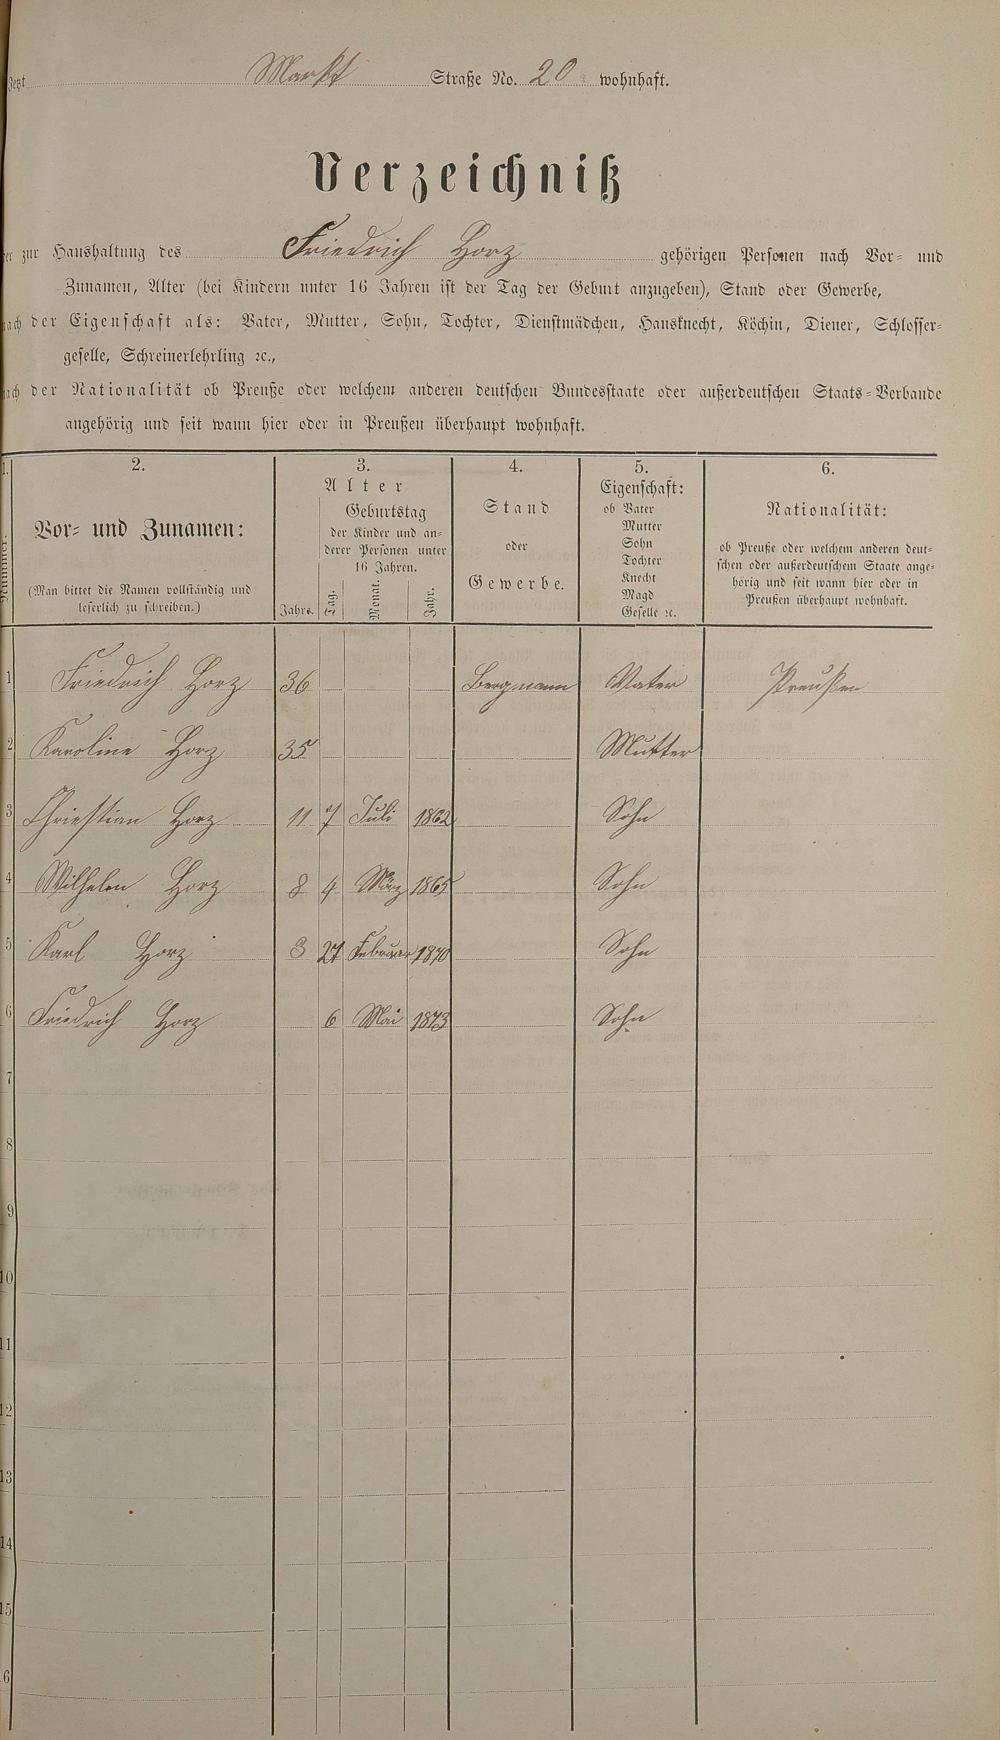 Jetzt Markt Straße No. 20 wohnhaft.
Verzeichniß
der zur Haushaltung des Friedrich Horz gehörigen Personen nach Vor- und
Zunamen, Alter (bei Kindern unter 16 Jahren ist der Tag der Geburt anzugeben), Stand oder Gewerbe,
nach der Eigenschaft als: Vater, Mutter, Sohn, Tochter, Dienstmädchen, Hausknecht, Köchin, Diener, Schlosser-
geselle, Schreinerlehrling ꝛc.,
nach der Nationalität ob Preuße oder welchem anderen deutschen Bundesstaate oder außerdeutschen Staats-Verbande
angehörig und seit wann hier oder in Preußen überhaupt wohnhaft.
1. 2. 3. 4. 5. 6.
Nummer.
Vor- und Zunamen:
(Man bittet die Namen vollständig und
leserlich zu schreiben.)
Alter
Jahre.
Geburtstag
der Kinder und an-
derer Personen unter
16 Jahren.
Tag. Monat. Jahr.
Stand
oder
Gewerbe.
Eigenschaft:
ob Vater
Mutter
Sohn
Tochter
Knecht
Magd
Geselle ꝛc.
Nationalität:
ob Preuße oder welchem anderen deut-
schen oder außerdeutschem Staate ange-
hörig und seit wann hier oder in
Preußen überhaupt wohnhaft.
1 Friedrich Horz 36 Bergmann Vater Preußen
2 Karoline Horz 35 Mutter
3 Chriestian Horz 11 7 Juli 1862 Sohn
4 Wilhelm Horz 8 4 März 1865 Sohn
5 Karl Horz 3 27 Februar 1870 Sohn
6 Friedrich Horz 6 Mai 1873 Sohn
7
8
9
10
11
12
13
14
15
6